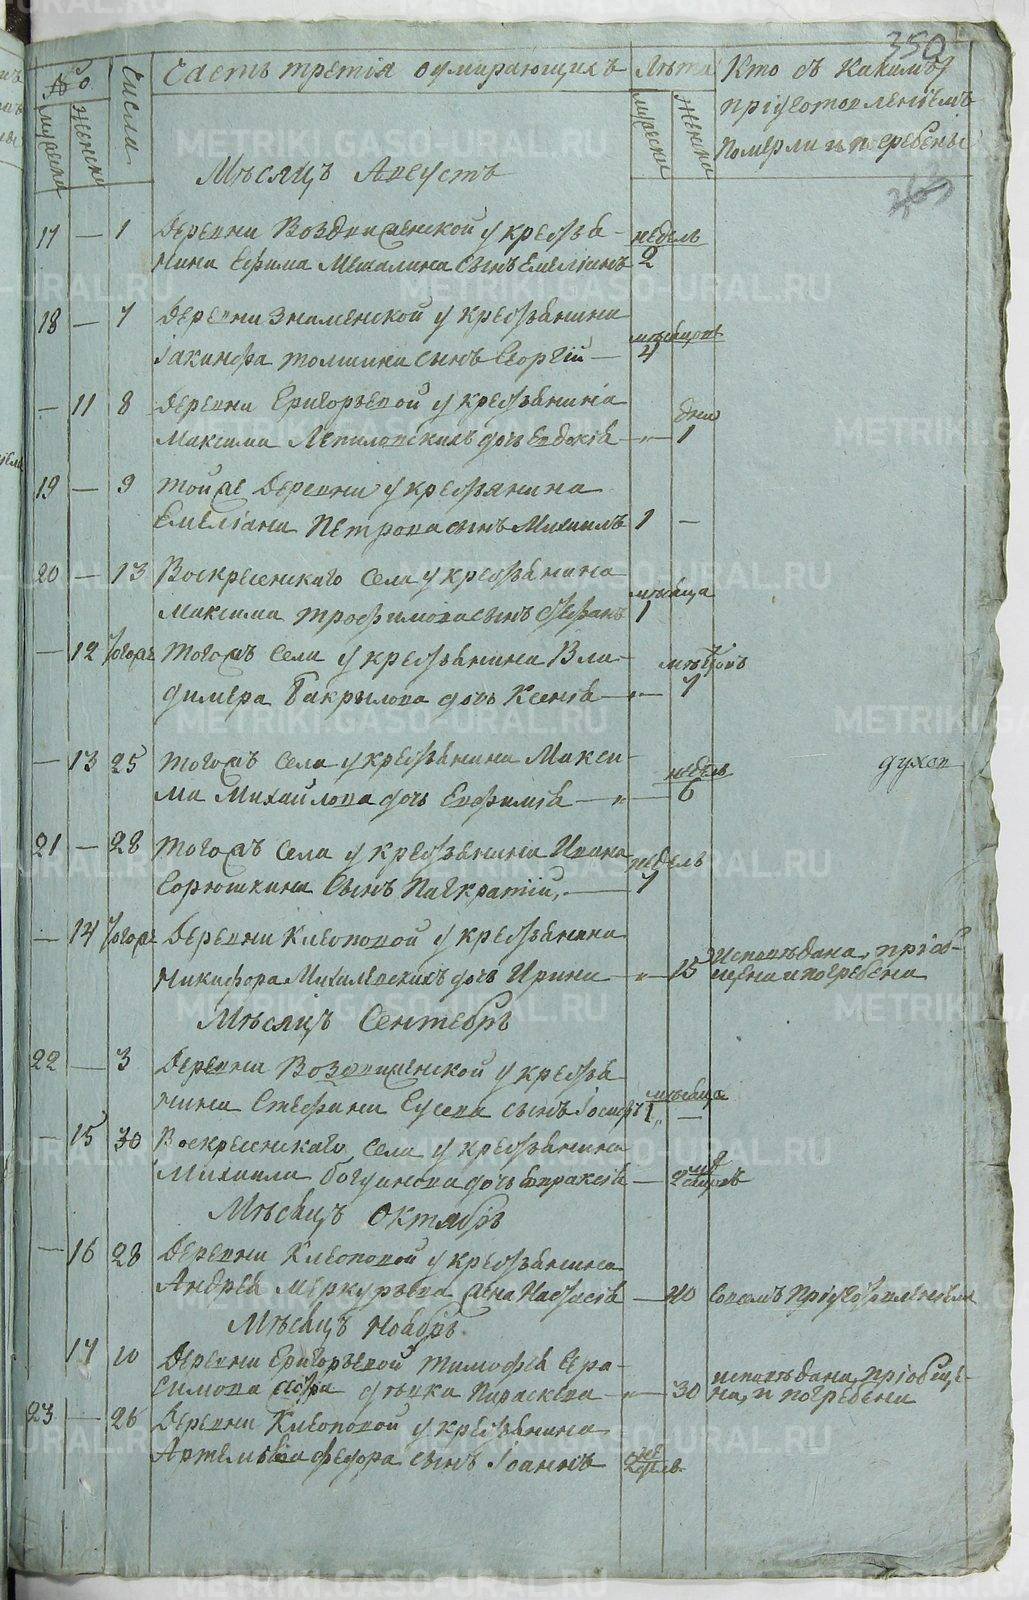 350
№
Мужеска
Женска
Числа
Часть третія о умирающихъ
Лѣта
Мужески
Женски
Кто съ какимъ
пріуготовленіемъ
померли и погребены
Мѣсяцъ Августъ
17 — 1 Деревни Воздвиженской у кресть-
янина Ефима Мешалина сынъ Емеліанъ недель 2
18 — 7 Деревни Знаменской у крестьянина
Іакинфа Томшина сынъ Георгій — 4
— 11 8 Деревни Григорьевой у крестьянина
Максима дочь Евдокія — „ — 1 дни
19 — 9 Тойже Деревни у крестьянина
Емеліана Петрова сынъ Михаилъ 1 —
20 — 13 Воскресенскаго села у крестьянина
Максима Трофимова сынъ Стефанъ мѣсяца 1
— 12 тогожъ Тогожъ села у крестьянина Вла-
димера дочь Ксенія — „ — 7
— 13 25 Тогожъ села у крестьянина Макси-
ма Михайлова дочь Евфимія — „ — недель 6
21 — 28 Тогожъ села у крестьянина Ивана
Горюшкина сынъ Панкратій. — недель 7
— 14 тогожъ Деревни Клеоповой у крестьянина
Никифора дочь Ирина „ — 15 Исповѣдана, пріоб-
щена и погребена
Мѣсяцъ Сентябрь
22 — 3 Деревни Воздвиженской у кресть-
янина Стефана Гусева сынъ Іосифъ мѣсяца 1 —
— 15 30 Воскресенскаго села у крестьянина
Михаила дочь — 2
Мѣсяцъ Октябрь
— 16 28 Деревни Клеоповой у крестьянина
Андрея Меркурьева жена Настасія — 40 пріуготовленіемъ
Мѣсяцъ Ноябрь
17 10 Деревни Григорьевой Тимофея Гера-
симова дѣвка Параскева — „ — 30 исповѣдана, пріобще-
на, и погребена
23 — 26 Деревни Клеоповой у крестьянина
Федора сынъ Іоаннъ 2
METRIKI.GASO-URAL.RU